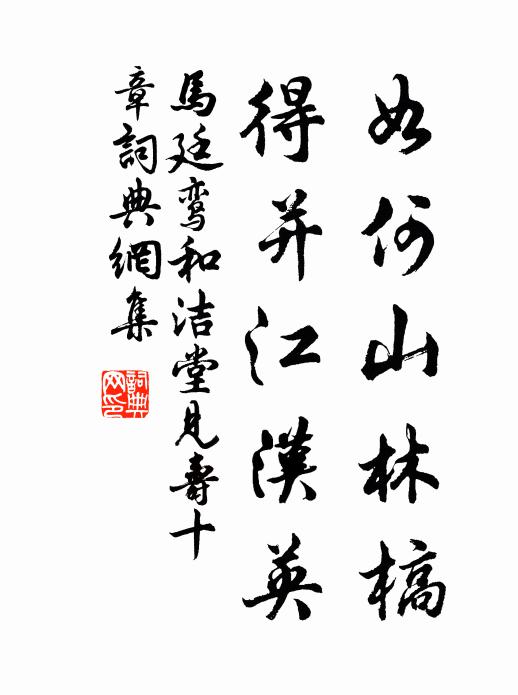 如何山林槁
得并江漢英
馬廷鸾和洁堂見壽十
章詞典網集
詞典网印